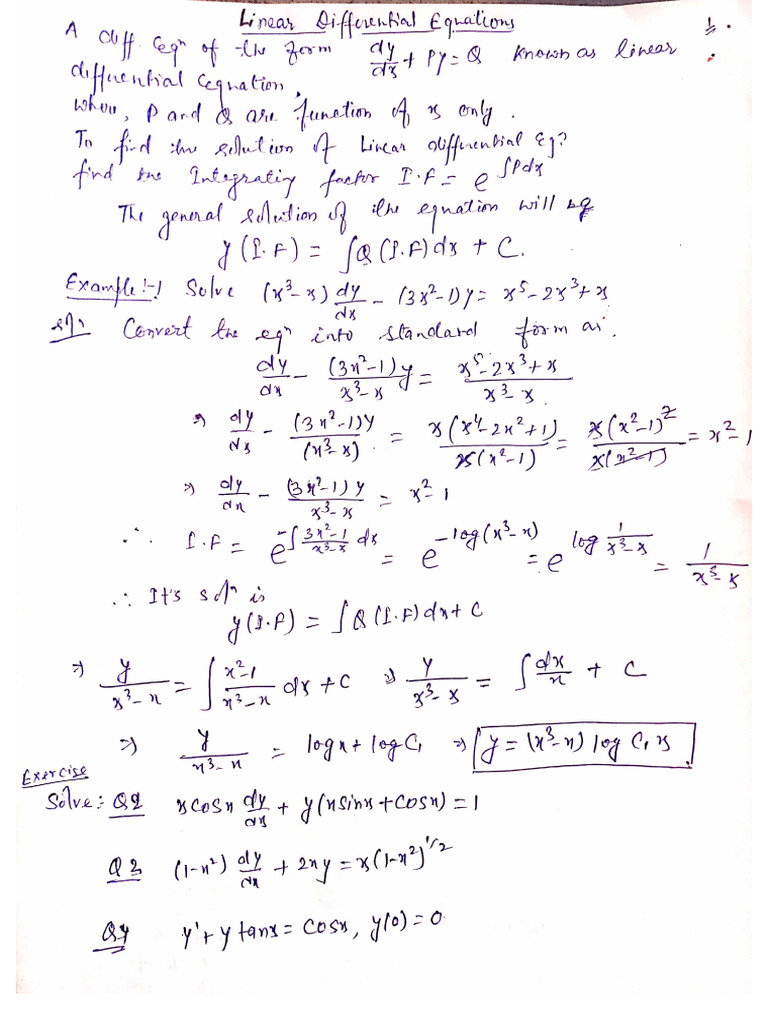 Linear Differential Equations
A diff. eqn of the form dy/dx + Py = Q known as linear
differential equation,
where, P and Q are function of x only.
To find the solution of Linear differential Eqn
find the Integrating factor I.F = e^∫Pdx
The general solution of the equation will be
y(I.F) = ∫Q(I.F)dx + C.
Example:-1 Solve (x³-x) dy/dx - (3x²-1)y = x⁵-2x³+x
Soln: Convert the eqn into standard form as.
dy/dx - (3x²-1)y/(x³-x) = (x⁵-2x³+x)/(x³-x)
⇒ dy/dx - (3x²-1)y/(x³-x) = x(x⁴-2x²+1)/x(x²-1) = x(x²-1)²/x(x²-1) = x²-1
⇒ dy/dx - (3x²-1)y/(x³-x) = x²-1
∴ I.F = e^-∫(3x²-1)/(x³-x) dx = e^-log(x³-x) = e^log 1/(x³-x) = 1/(x³-x)
∴ It's soln is
y(I.F) = ∫Q(I.F)dx + C
⇒ y/(x³-x) = ∫(x²-1)/(x³-x) dx + C ⇒ y/(x³-x) = ∫dx/x + C
⇒ y/(x³-x) = logx + logC₁ ⇒ y = (x³-x) log C₁x
Exercise
Solve: Q2 xcosx dy/dx + y(xsinx + cosx) = 1
Q3 (1-x²) dy/dx + 2xy = x(1-x²)^1/2
Q4 y' + y tanx = cosx, y(0) = 0